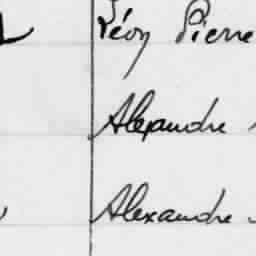 Léon Pierre
Alexandre
Alexandre